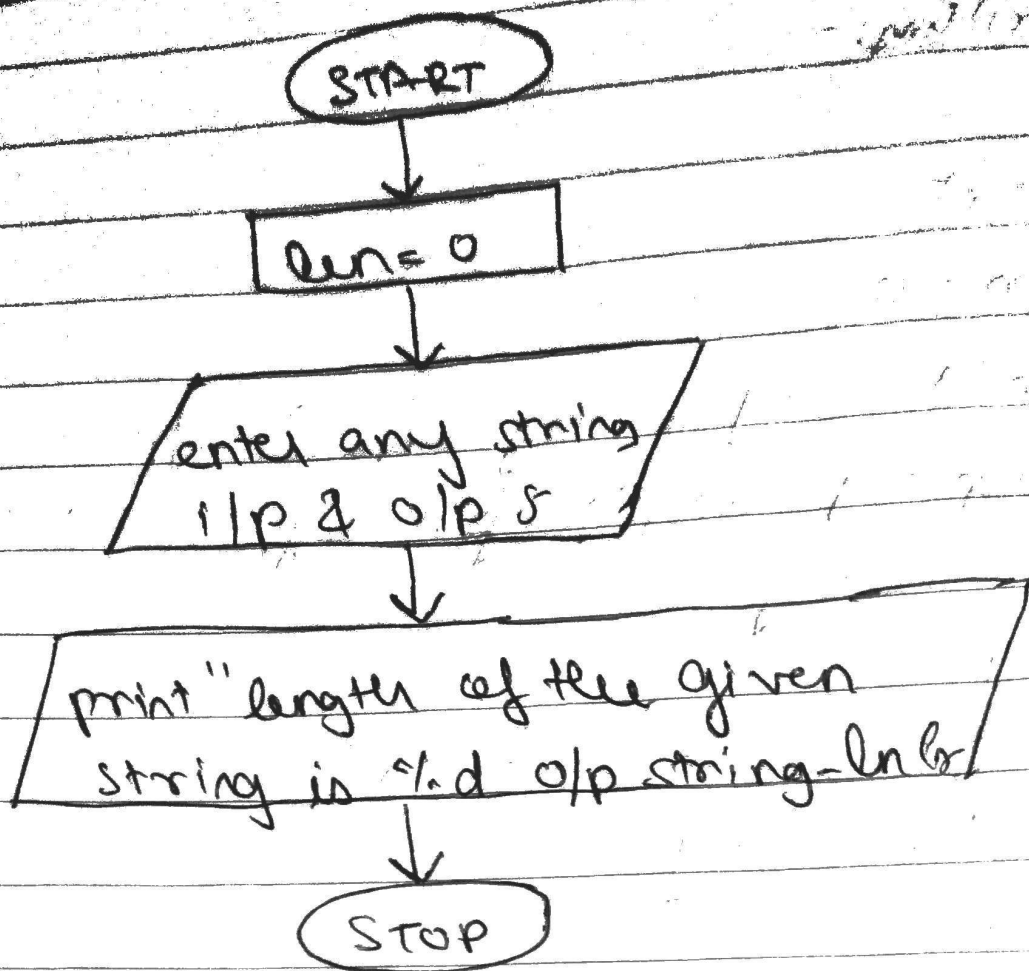 START
len = 0
enter any string
i/p & o/p s
print "length of the given
string is %d o/p string-ln
STOP